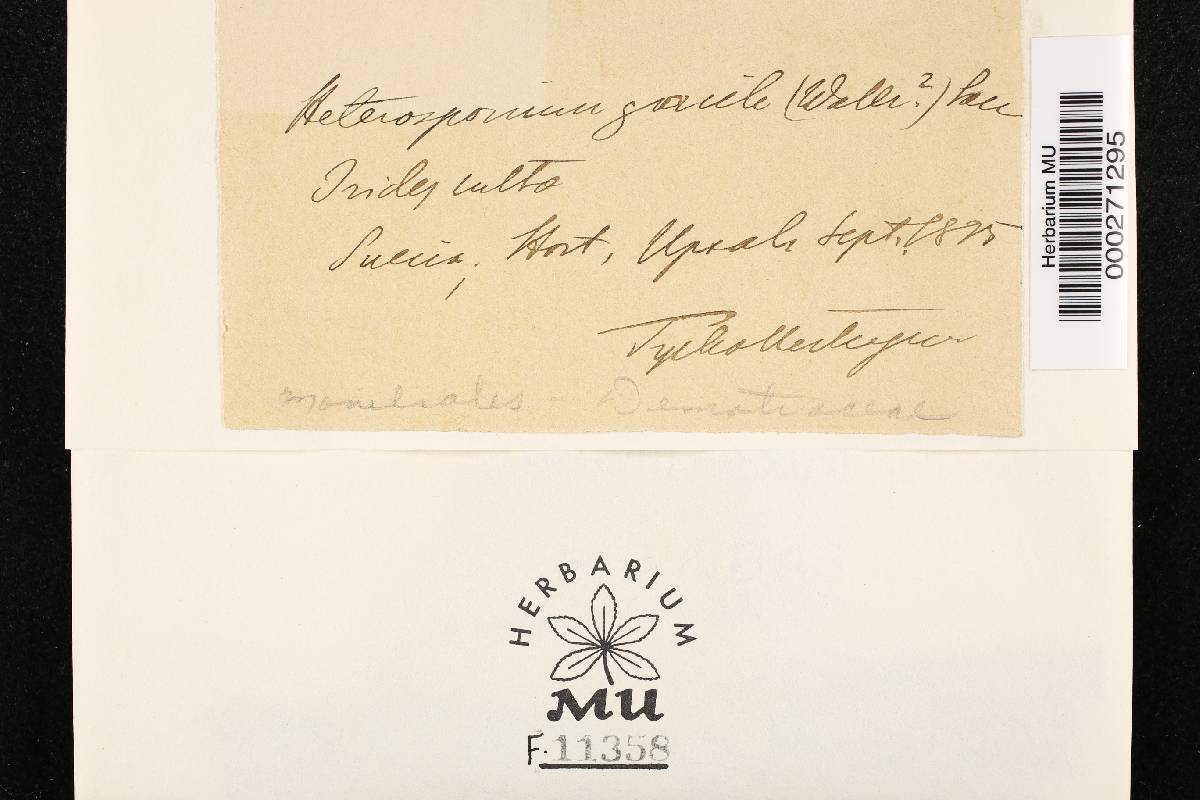 Heterosporium gracile (Wallr.?) Sacc
Irides culta
Suecia, Hort, Upsal. Sept. 1895
Tycho Vestergren
Moniliales - Dematiaceae
Herbarium MU
000271295
HERBARIUM
MU
F. 11358